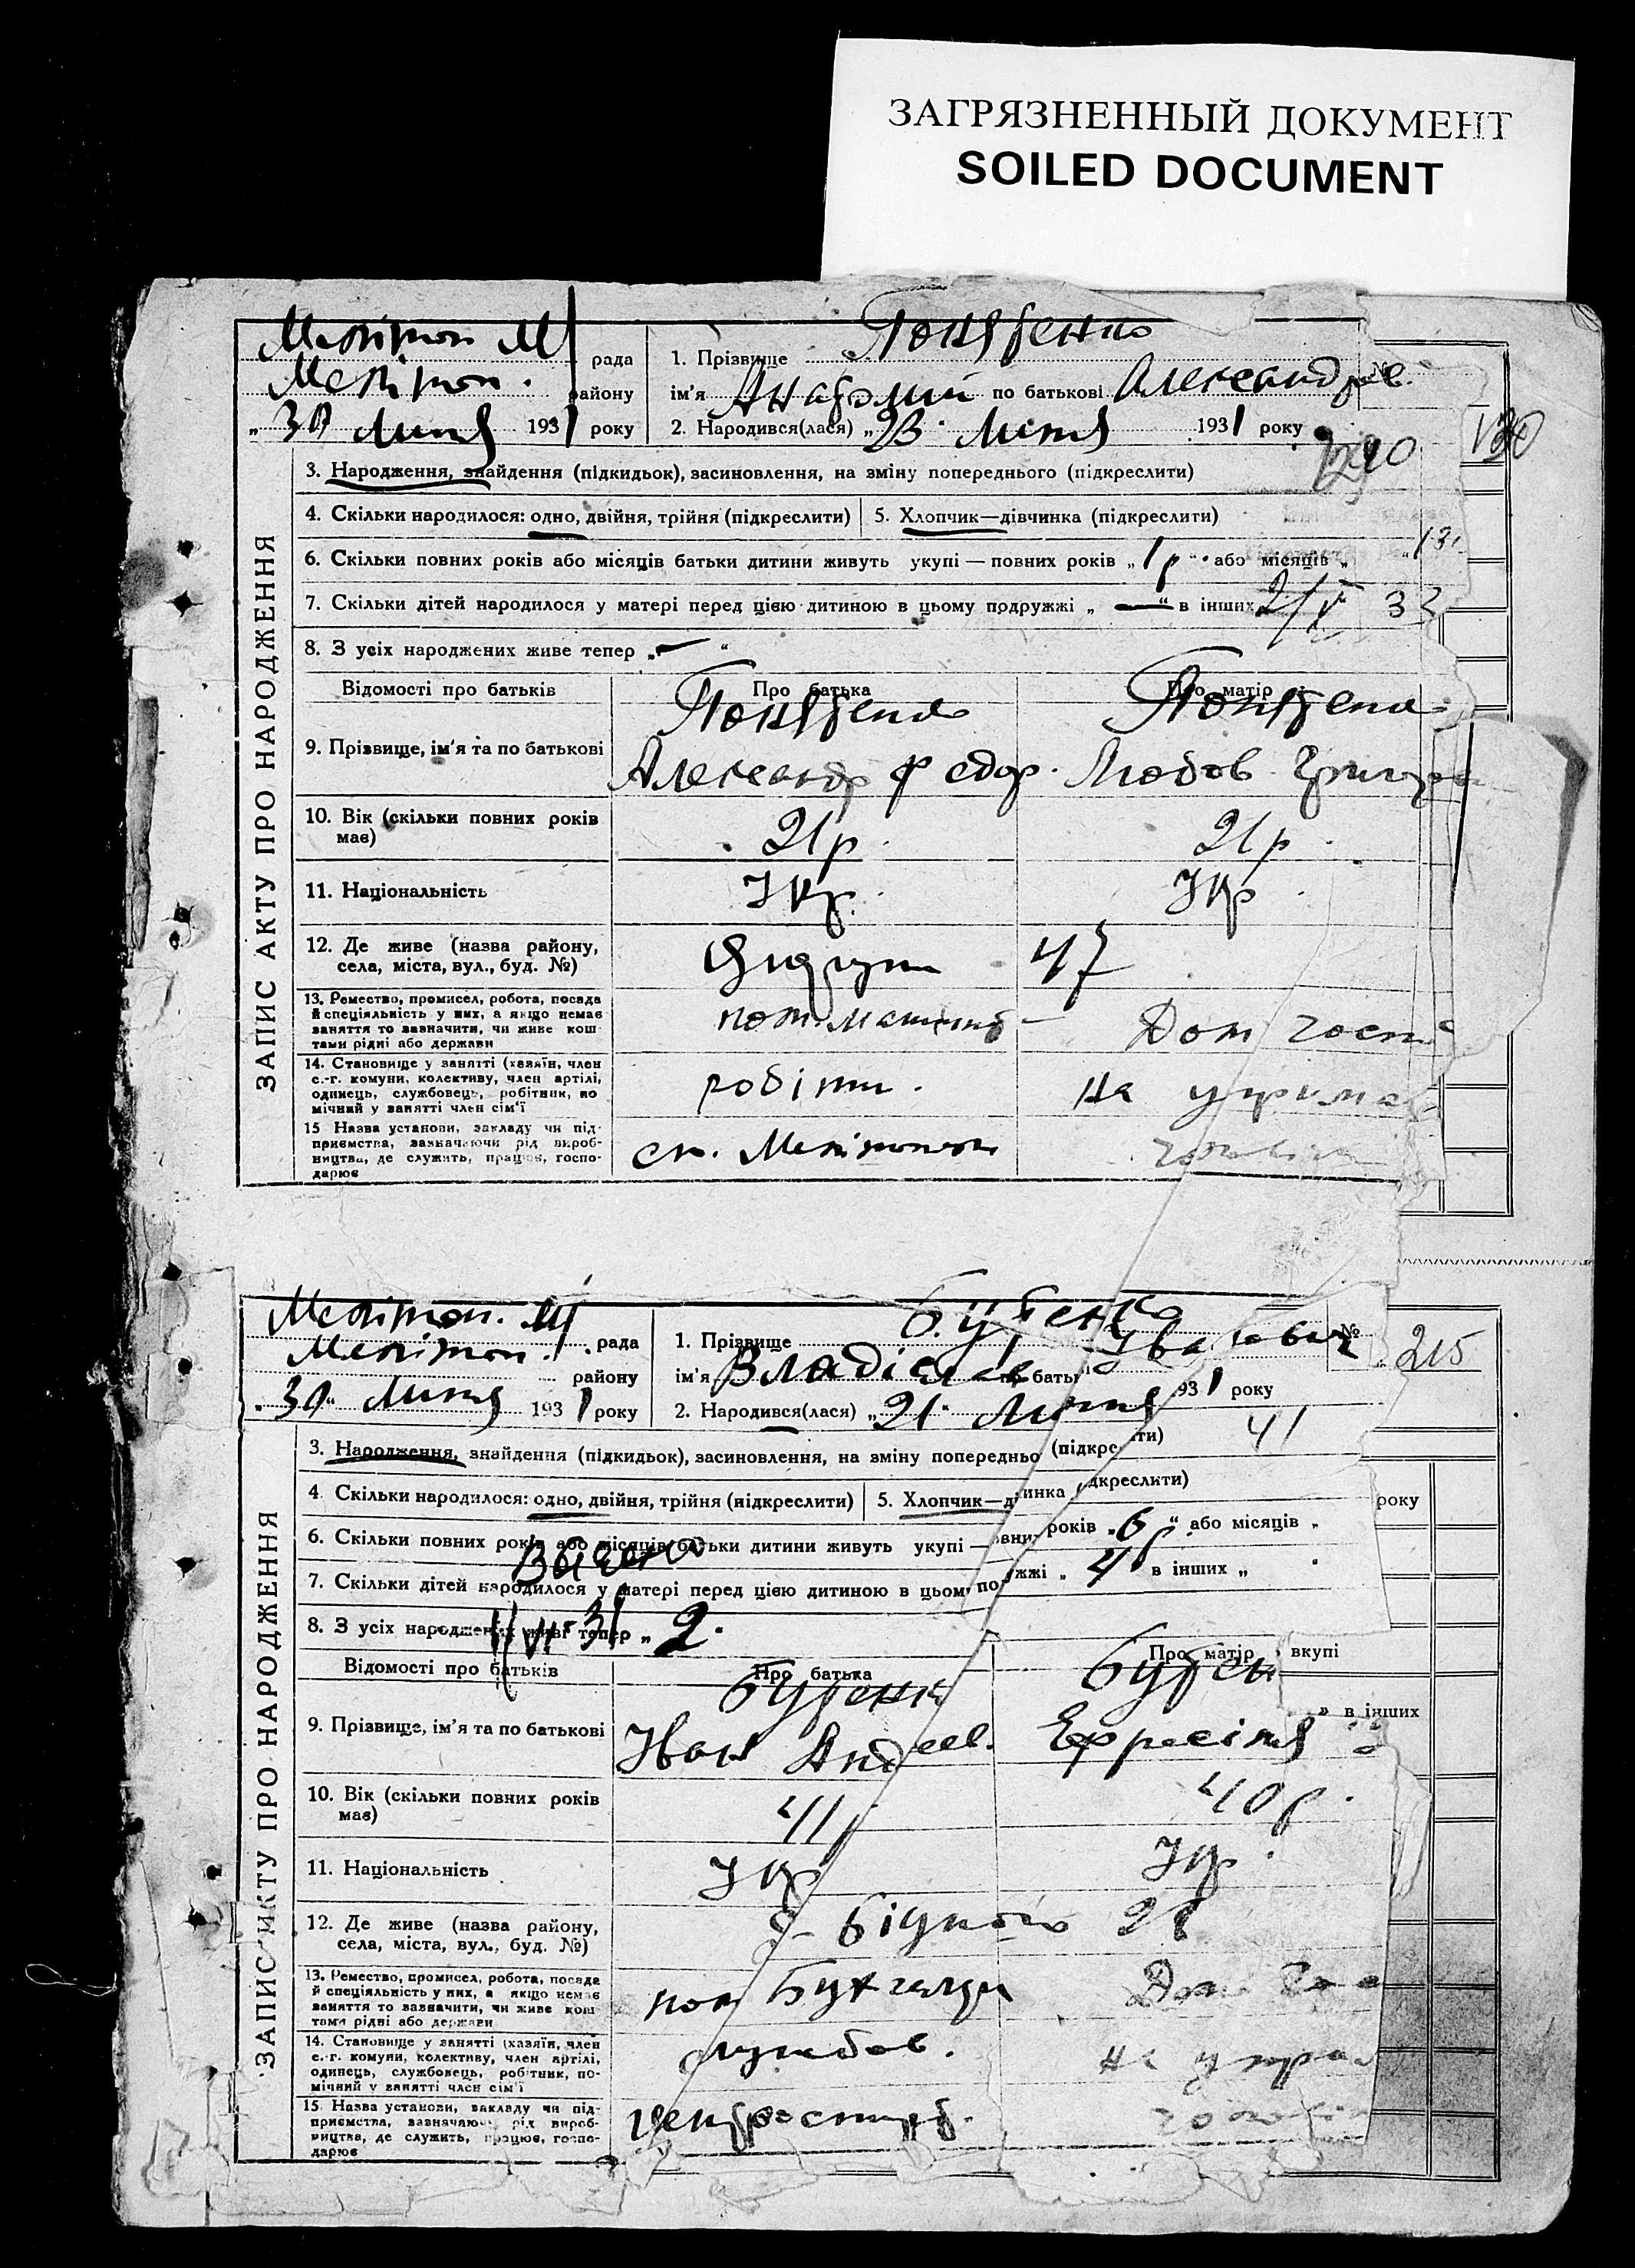 ЗАГРЯЗНЕННЫЙ ДОКУМЕНТ
SOILED DOCUMENT
ЗАПИС АКТУ ПРО НАРОДЖЕННЯ
Мелітоп. М рада
Меліто п. району
„30 Липня 1931 року
1. Прізвище
ім'я Анатолий по батькові Александров.
2. Народився(лася) „23" Липня 1931 року
290
130
3. Народження, знайдення (підкидьок), засиновлення, на зміну попереднього (підкреслити)
4. Скільки народилося: одно, двійня, трійня (підкреслити)
5. Хлопчик—дівчинка (підкреслити)
6. Скільки повних років або місяців батьки дитини живуть укупі — повних років „1р." або місяців „
7. Скільки дітей народилося у матері перед цією дитиною в цьому подружжі „—" в інших
8. З усіх народжених живе тепер „—"
Відомості про батьків
Про батька
Про матір
9. Прізвище, ім'я та по батькові
Александр Федор.
Любов Григор
10. Вік (скільки повних років має)
21р.
21р.
11. Національність
Укр.
Укр.
12. Де живе (назва району, села, міста, вул., буд. №)
47
13. Ремество, промисел, робота, посада
й спеціяльність у них, а якщо немає
заняття то зазначити, чи живе кош-
тами рідні або держави
пом. машиніс
Дом госп
14. Становище у занятті (хазяїн, член
с.-г. комуни, колективу, член артілі,
одинець, службовець, робітник, по
мічний у занятті член сім'ї
робітн.
на утрима
15 Назва установи, закладу чи під-
приємства, зазначаючи рід вироб-
ництва, де служить, працює, госпо-
дарює
ст. Мелітополь
чоловіка
ЗАПИС АКТУ ПРО НАРОДЖЕННЯ
Мелітоп. М рада
Мелітоп. району
„30" Липня 1931 року
1. Прізвище Бутенко
ім'я Владіслав по батькові Іванович
№ 215
2. Народився(лася) „21" Липня 1931 року
41
3. Народження, знайдення (підкидьок), засиновлення, на зміну попередньо (підкреслити)
4. Скільки народилося: одно, двійня, трійня (підкреслити)
5. Хлопчик—дівчинка (підкреслити)
року
6. Скільки повних років або місяців батьки дитини живуть укупі — повних років „6р." або місяців „
7. Скільки дітей народилося у матері перед цією дитиною в цьому подружжі „4 в інших „
8. З усіх народжених живе тепер „2.
Відомості про батьків
Про батька
Про матір
вкупі
9. Прізвище, ім'я та по батькові
Бутенк
Бутен
" в інших
Иван Андреев.
Ефросіня
10. Вік (скільки повних років має)
41р
40р.
11. Національність
Укр
Укр.
12. Де живе (назва району, села, міста, вул., буд. №)
Бідноти 28
13. Ремество, промисел, робота, посада
й спеціяльність у них, а якщо немає
заняття то зазначити, чи живе кош
тами рідні або держави
пом Бухгалтр
Дом Го
14. Становище у занятті (хазяїн, член
с.-г. комуни, колективу, член артілі,
одинець, службовець, робітник, по-
мічний у занятті член сім'ї
службов.
на утрим
15. Назва установи, закладу чи під-
приємства, зазначаючи рід вироб-
ництва, де служить, працює, госпо-
дарює
чоловік